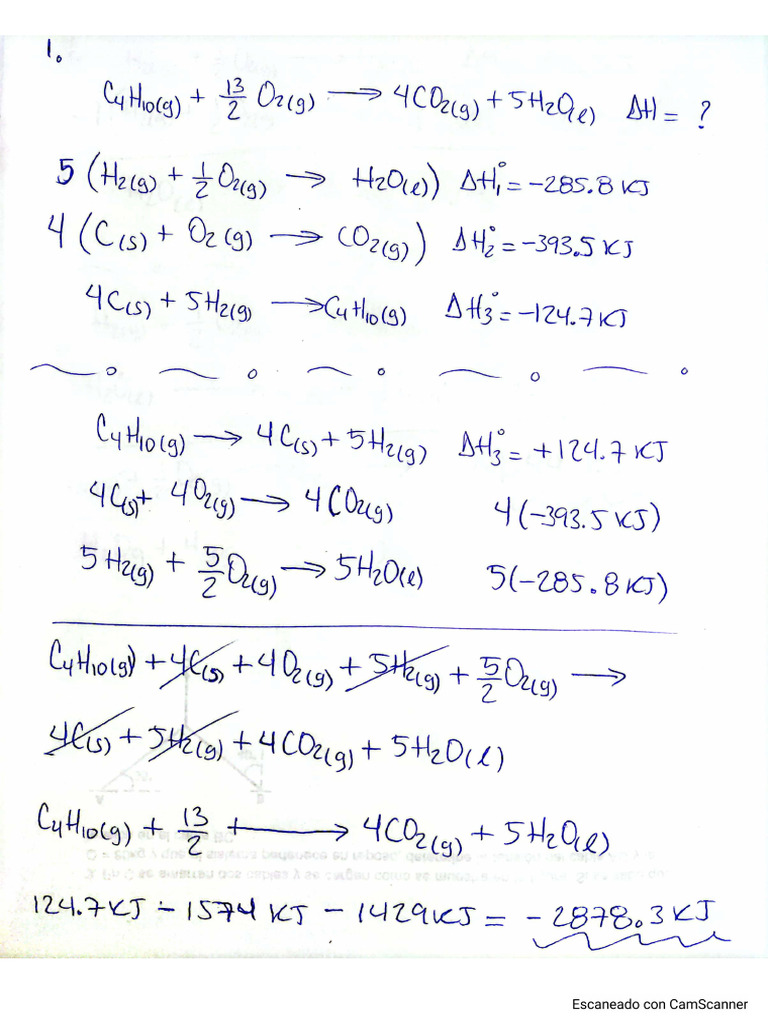 1.
C4H10(g) + 13/2 O2(g) ⟶ 4CO2(g) + 5H2O(l) ΔH = ?
5 (H2(g) + 1/2 O2(g) ⟶ H2O(l)) ΔH1° = -285.8 KJ
4 (C(s) + O2(g) ⟶ CO2(g)) ΔH2° = -393.5 KJ
4C(s) + 5H2(g) ⟶ C4H10(g) ΔH3° = -124.7 KJ
C4H10(g) ⟶ 4C(s) + 5H2(g) ΔH3° = +124.7 KJ
4C(s) + 4O2(g) ⟶ 4CO2(g) 4(-393.5 KJ)
5H2(g) + 5/2 O2(g) ⟶ 5H2O(l) 5(-285.8 KJ)
C4H10(g) + 4C(s) + 4O2(g) + 5H2(g) + 5/2 O2(g) ⟶
4C(s) + 5H2(g) + 4CO2(g) + 5H2O(l)
C4H10(g) + 13/2 + ⟶ 4CO2(g) + 5H2O(l)
124.7 KJ - 1574 KJ - 1429 KJ = -2878.3 KJ
Escaneado con CamScanner